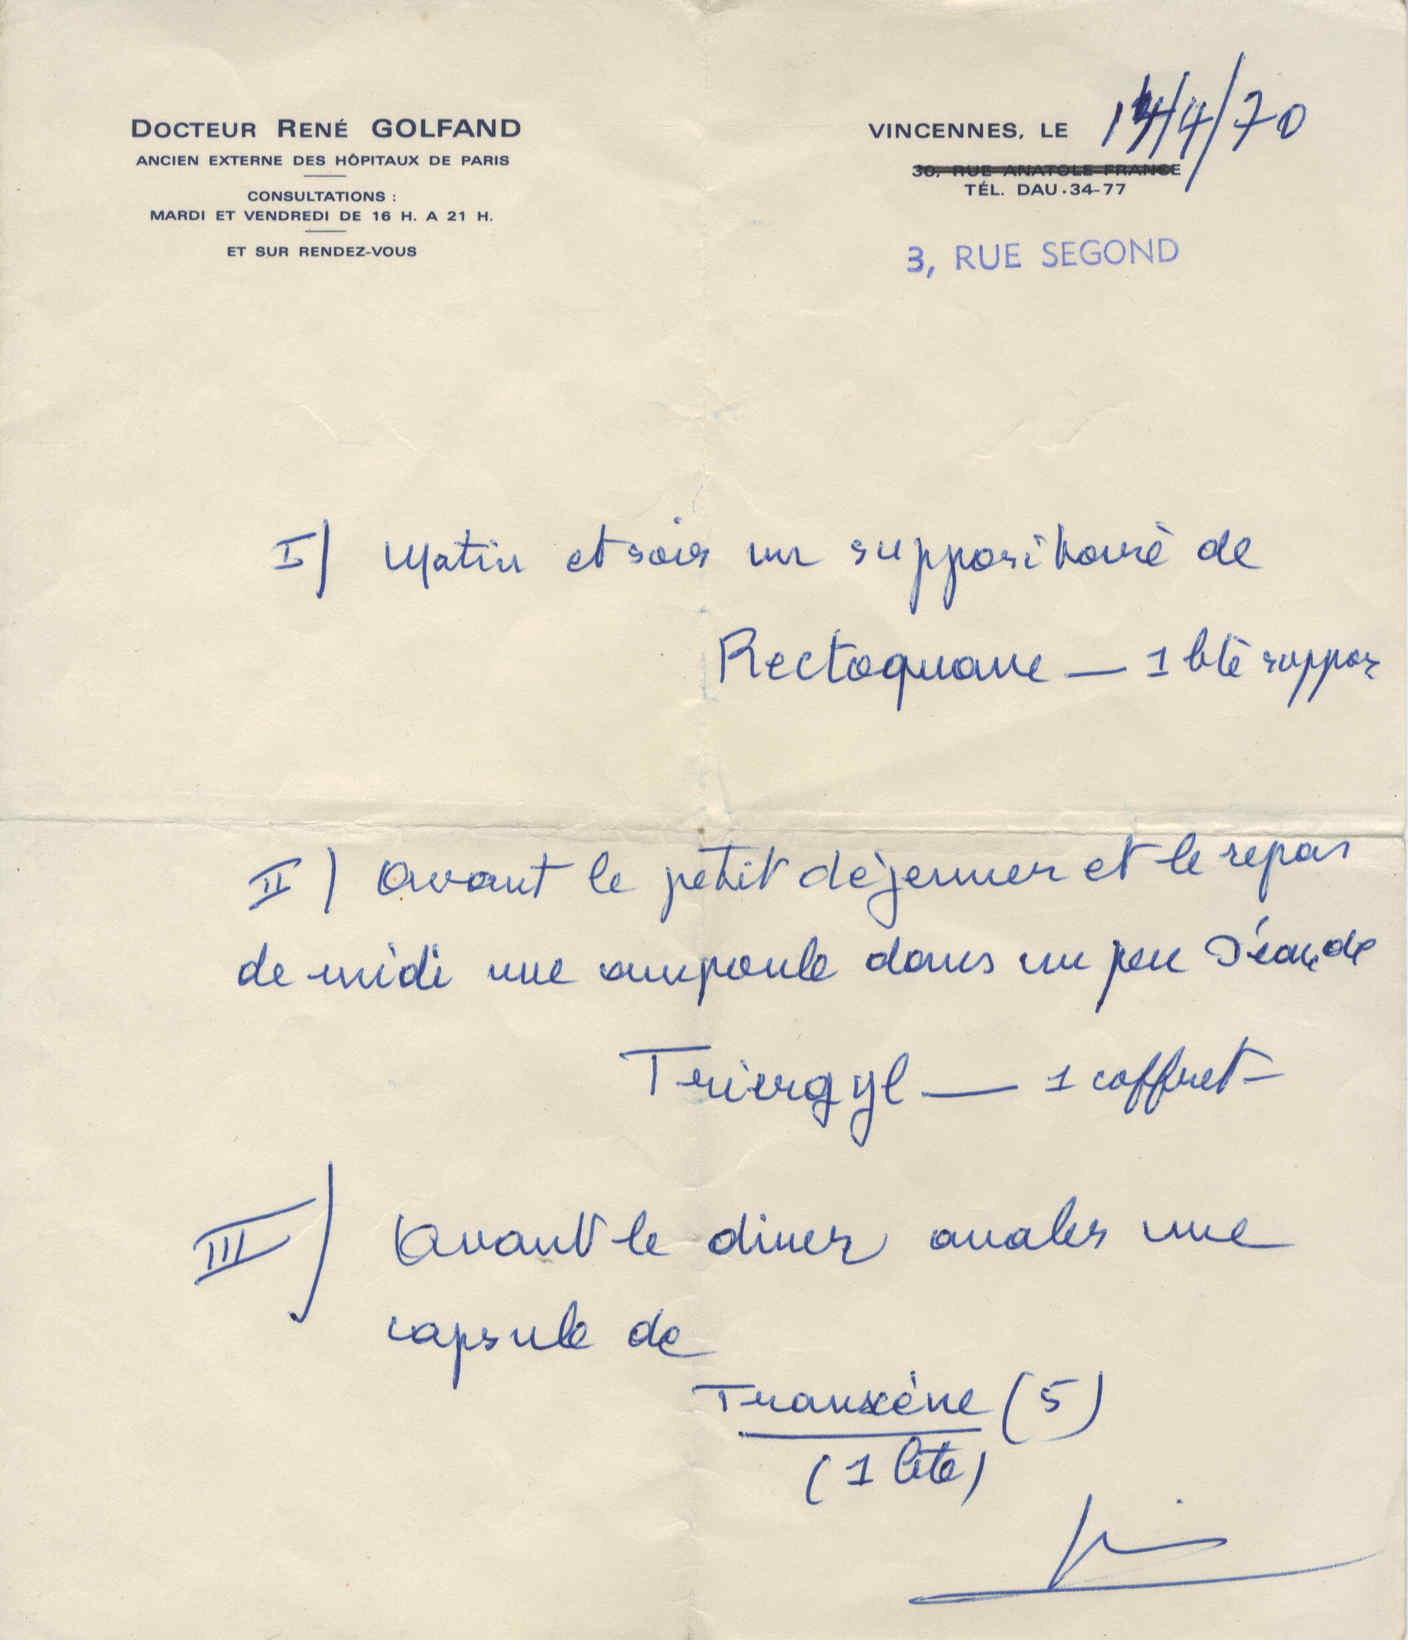 DOCTEUR RENÉ GOLFAND
ANCIEN EXTERNE DES HÔPITAUX DE PARIS
CONSULTATIONS :
MARDI ET VENDREDI DE 16 H. A 21 H.
ET SUR RENDEZ-VOUS
VINCENNES, LE 14/4/70
30, RUE ANATOLE FRANCE
TÉL. DAU.34-77
3, RUE SEGOND
I) Matin et soir un suppositoire de
Rectoquane — 1 bte suppos
II) Avant le petit déjeuner et le repas
de midi une ampoule dans un peu d'eau de
Triergyl — 1 coffret —
III) Avant le diner avaler une
capsule de
Tranxène (5)
(1 bte)